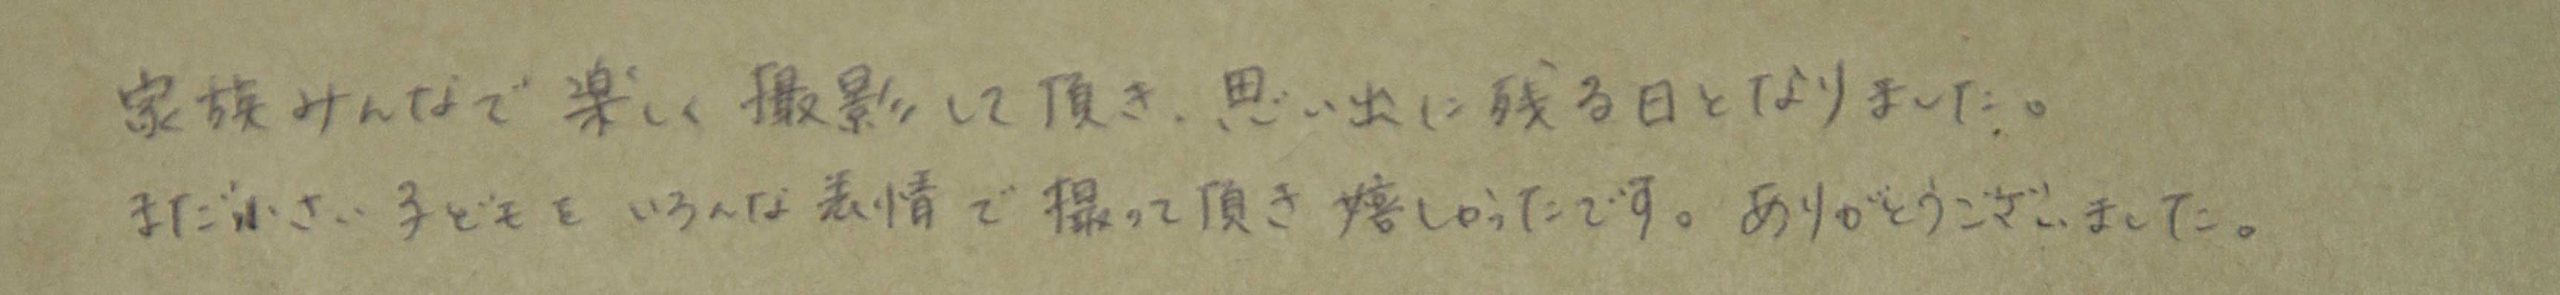 家族みんなで楽しく撮影して頂き、思い出に残る日となりました。
まだ小さい子どもをいろんな表情で撮って頂き嬉しかったです。ありがとうございました。